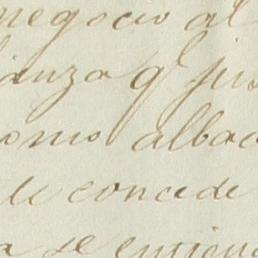 negocio al
ianza q.e jus
omo albac
de concede
a se entiend